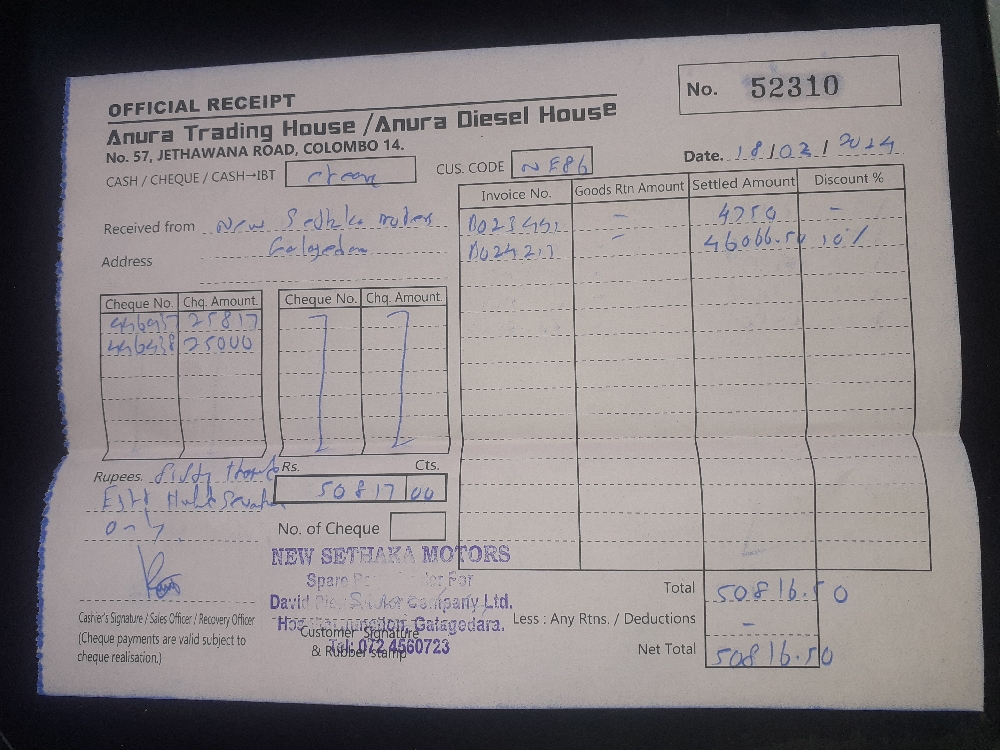 OFFICIAL RECEIPT
No. 52310
Anura Trading House /Anura Diesel House
No. 57, JETHAWANA ROAD, COLOMBO 14.
Date. 18/02/2024
CASH / CHEQUE / CASH→IBT
CUS. CODE NE86
Invoice No. Goods Rtn Amount Settled Amount Discount %
Received from New motors
4750 -
46066.50 10%
Address
Cheque No. Chq. Amount. Cheque No. Chq. Amount.
25817
446438 25000
Rupees. fifty Rs. Cts.
50817 00
only
No. of Cheque
NEW SETHAKA MOTORS
Spare For
David Company Ltd.
Galagedara.
Tel: 072 4560723
Total 50816.50
Cashier's Signature / Sales Officer / Recovery Officer
Less : Any Rtns. / Deductions -
(Cheque payments are valid subject to
cheque realisation.)
Customer Signature
& Rubber stamp
Net Total 50816.50